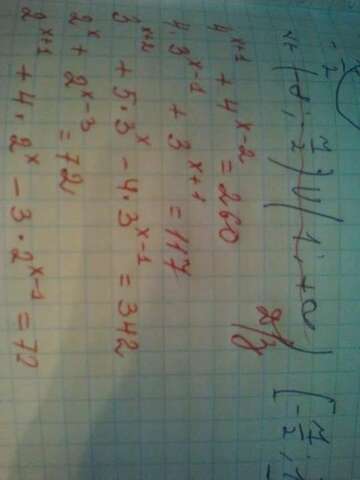 (-∞; -1/2) ∪ (1; +∞) [-1/2; 1
д/з
4^{x+1} + 4^{x-2} = 260
4·3^{x-1} + 3^{x+1} = 117
3^{x+2} + 5·3^x - 4·3^{x-1} = 342
2^x + 2^{x-3} = 72
2^{x+1} + 4·2^x - 3·2^{x-1} = 72